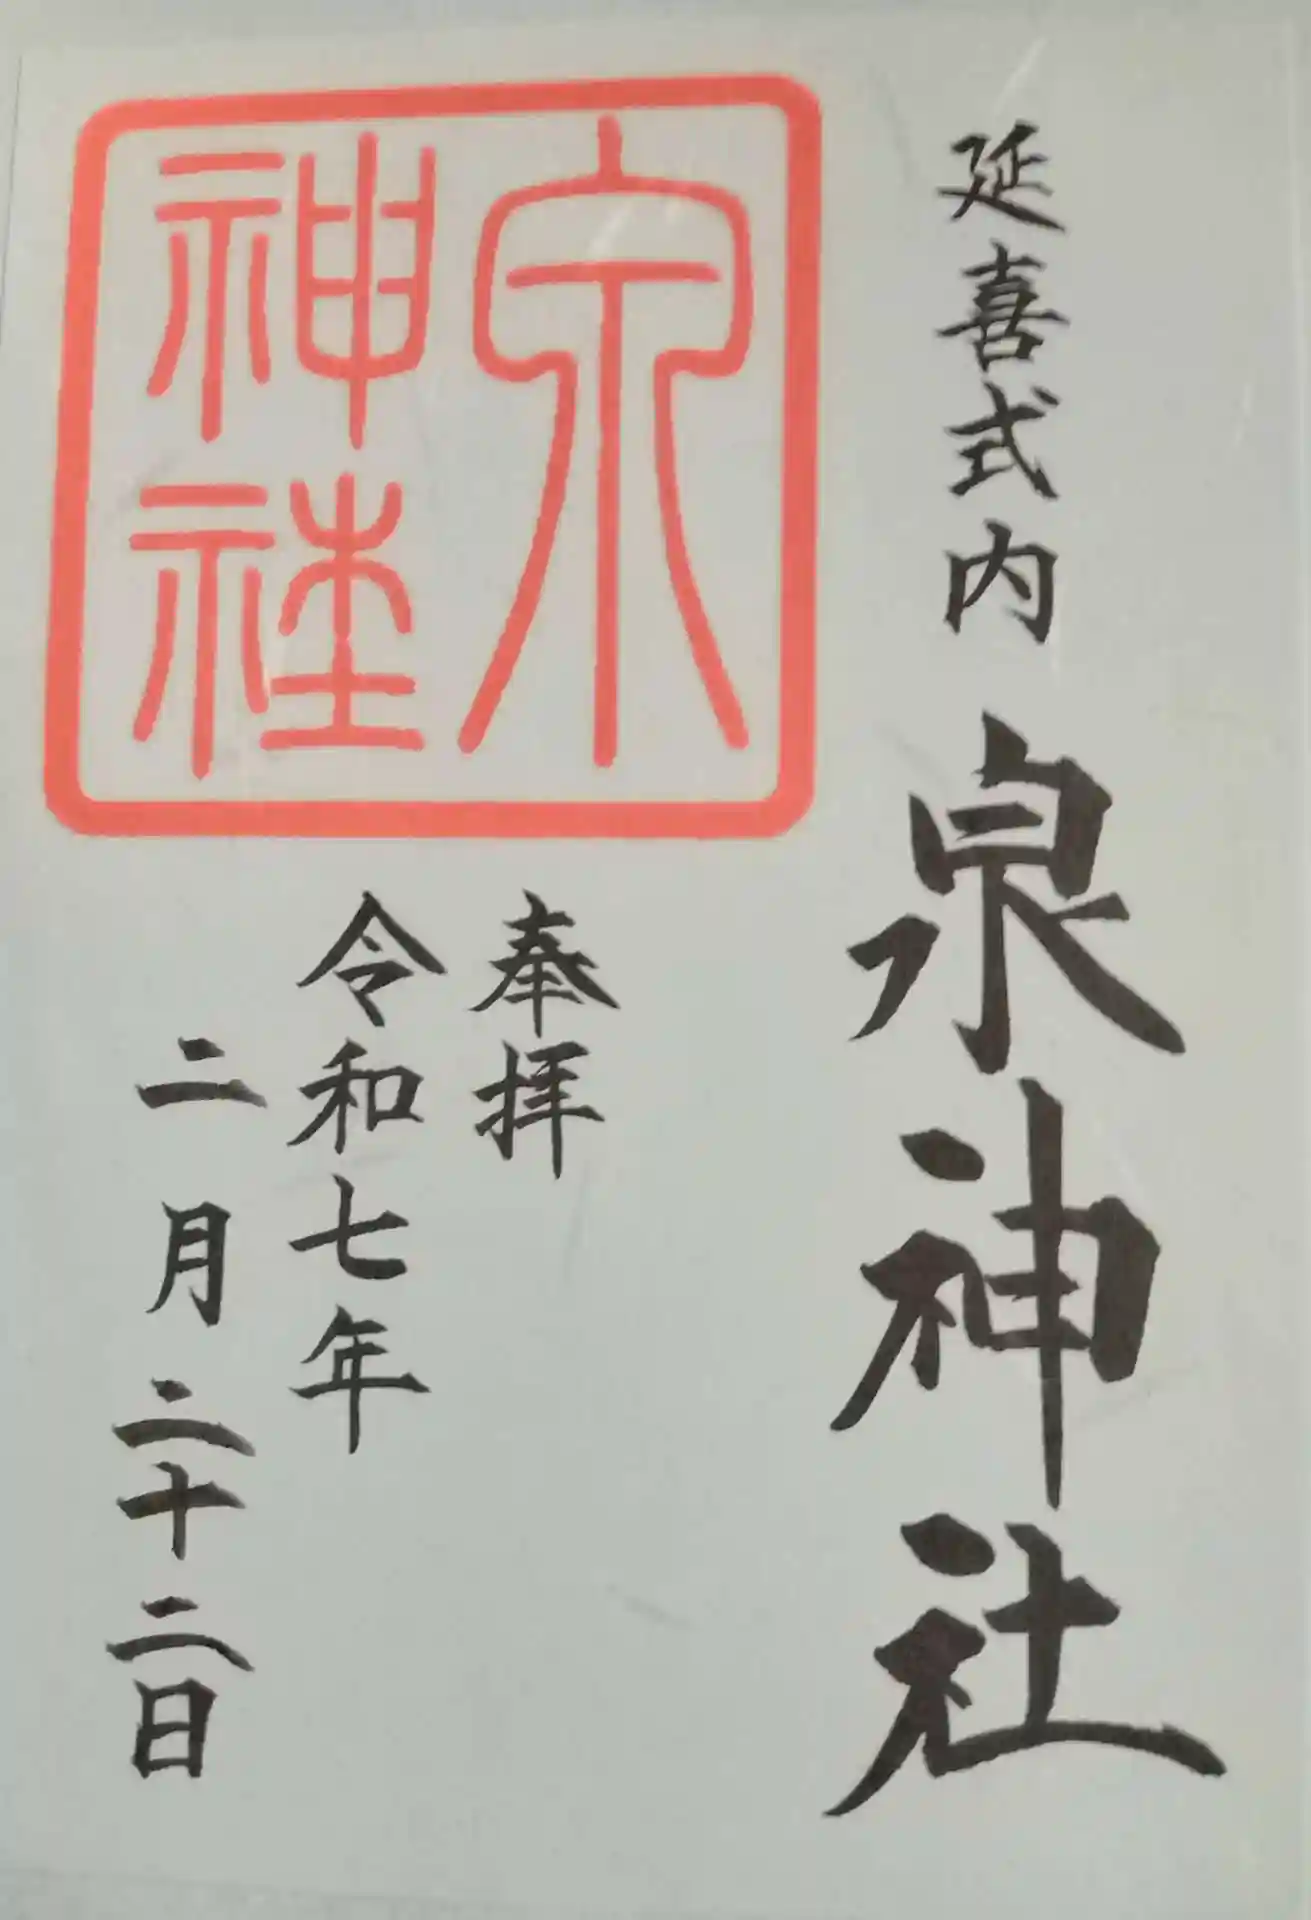 延喜式内 泉神社
泉
神社
奉拝
令和七年
二月二十二日